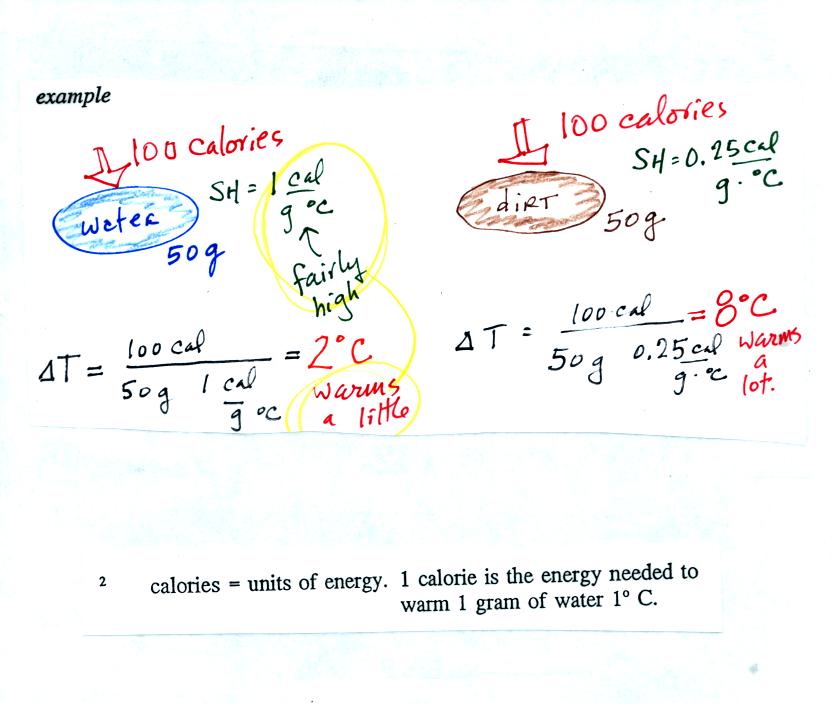 example
100 calories
SH = 1 cal
g °C
water
50g
↑
fairly
high
ΔT = 100 cal = 2°C
50g 1 cal
g °C
warms
a little
100 calories
SH = 0.25 cal
g · °C
dirt
50g
ΔT = 100 cal = 8°C
50g 0.25 cal
g · °C
warms
a
lot.
2 calories = units of energy. 1 calorie is the energy needed to
warm 1 gram of water 1° C.